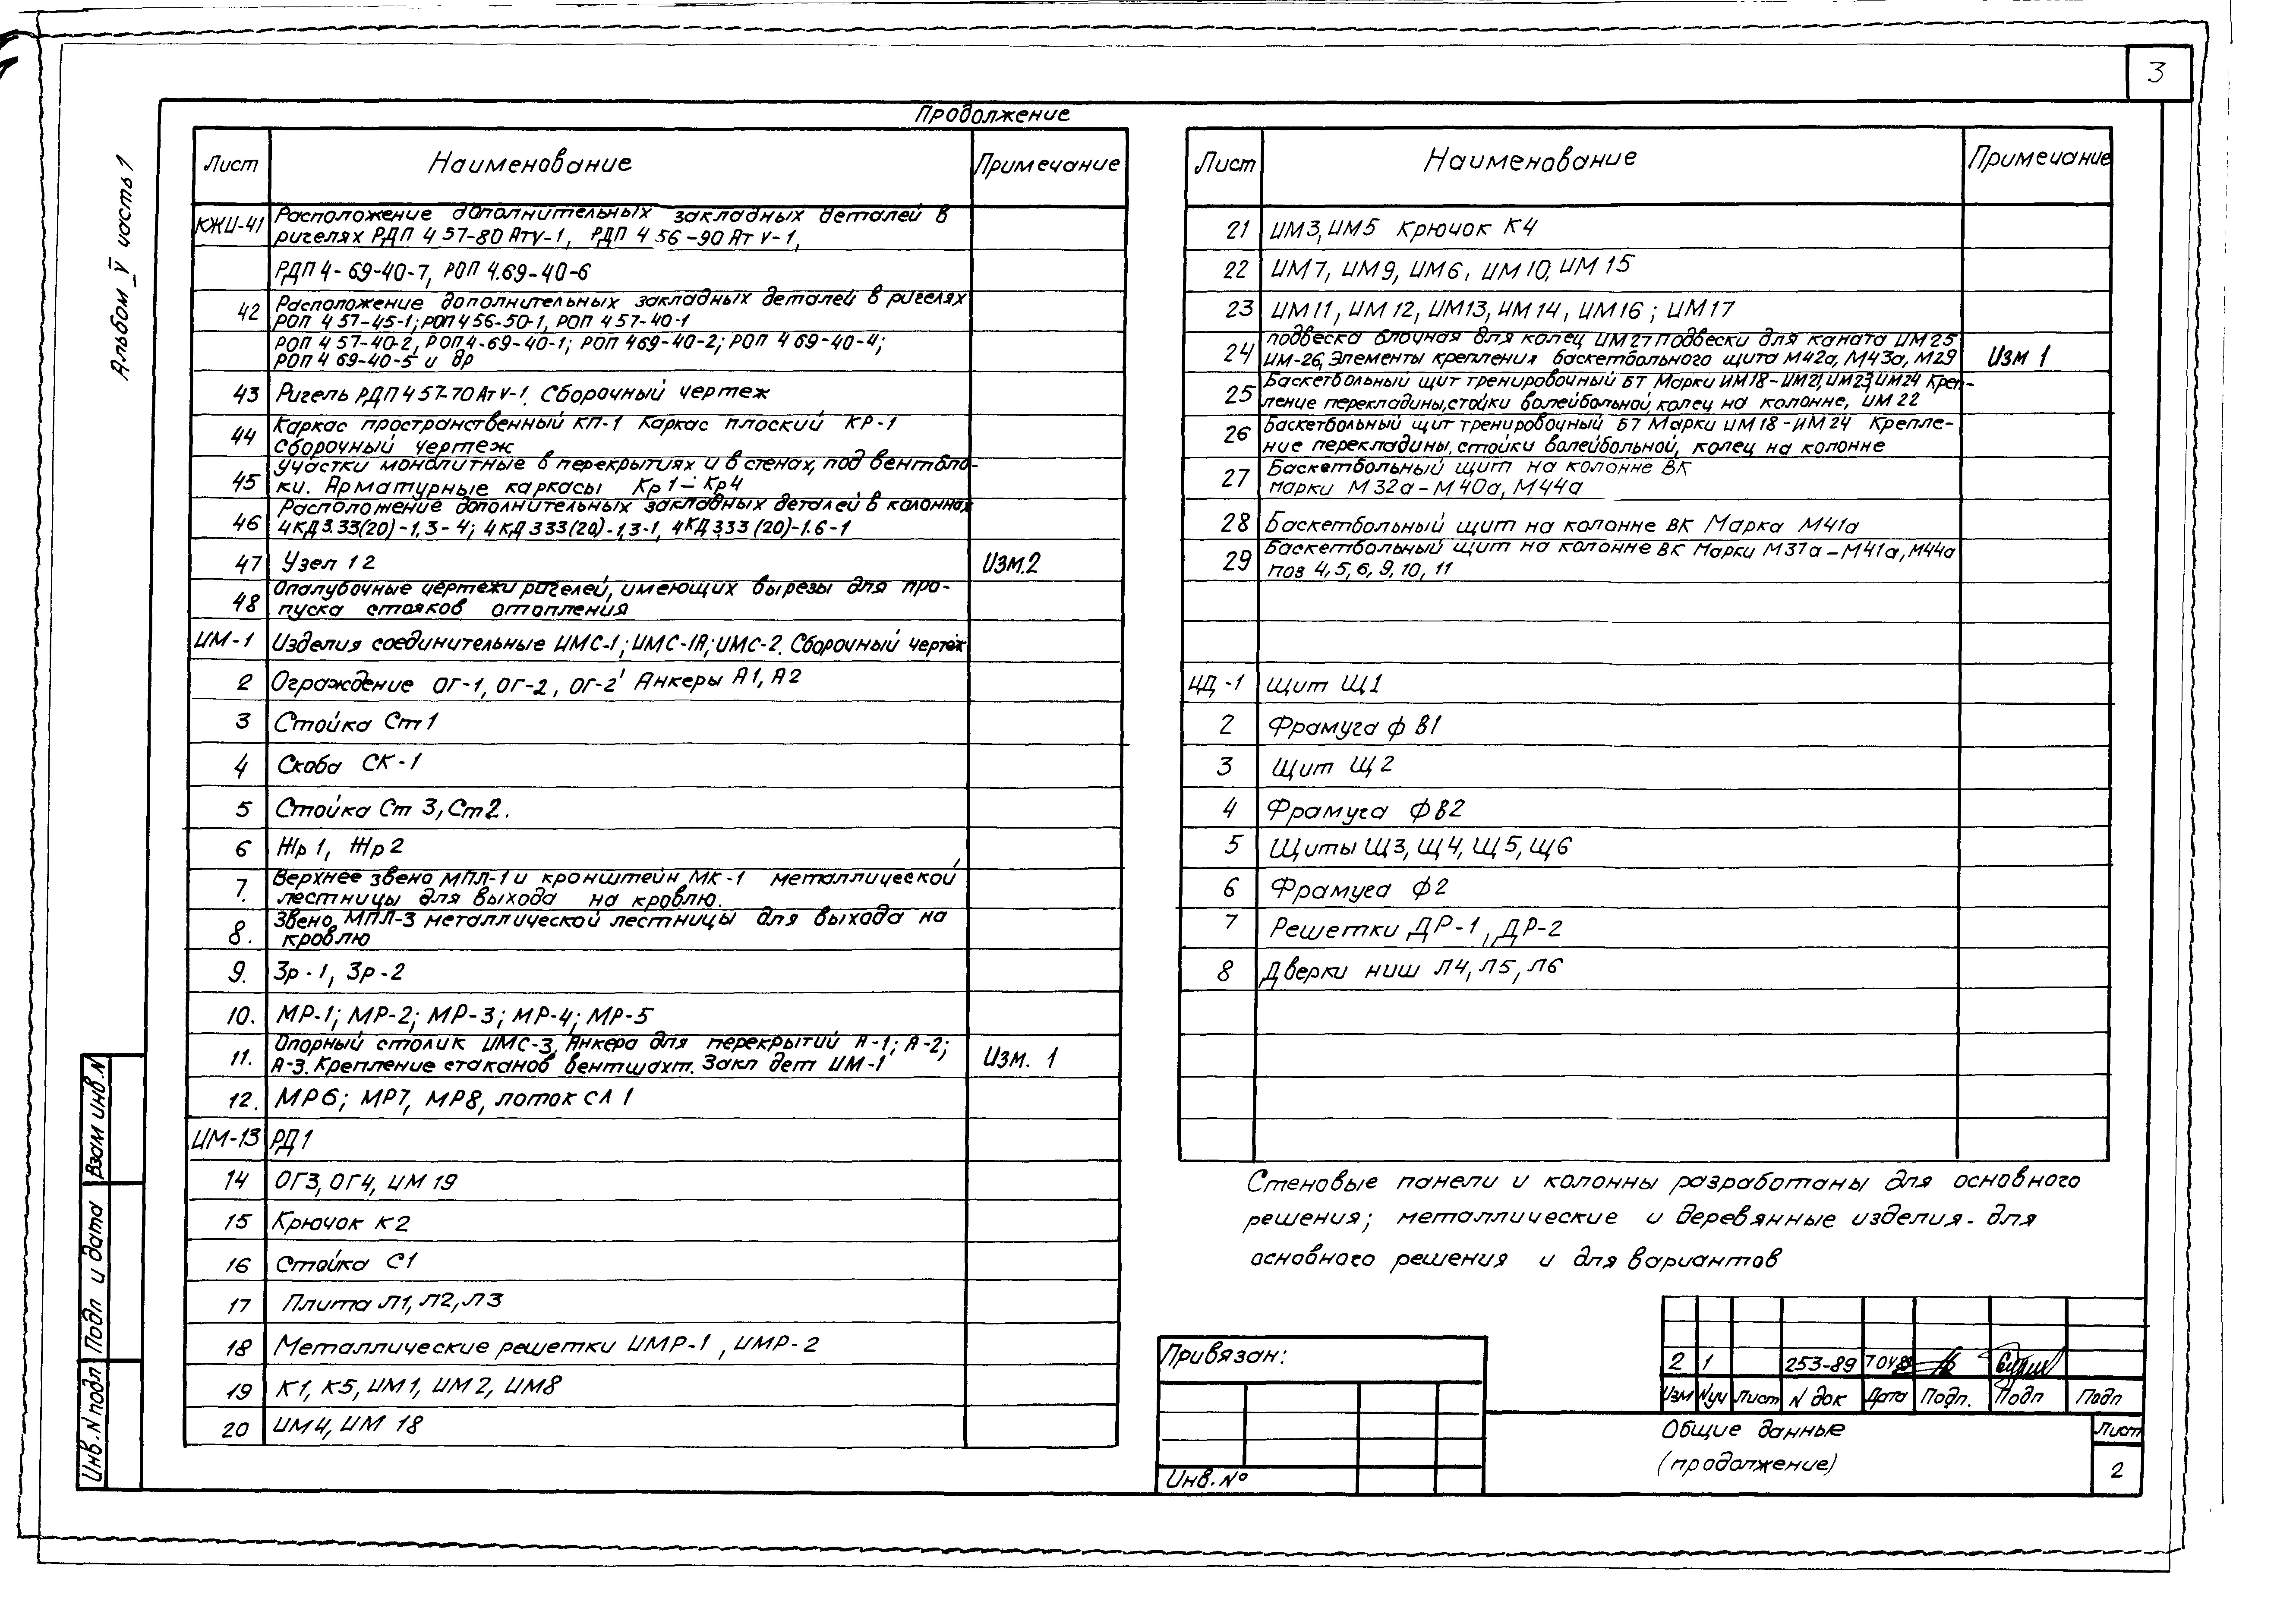 3
Альбом V часть 1
Продолжение
Лист Наименование Примечание
КЖИ-41 Расположение дополнительных закладных деталей в
ригелях РДП 4 57-80 АтV-1, РДП 4 56-90 Ат V-1,
РДП 4-69-40-7, РОП 4.69-40-6
42 Расположение дополнительных закладных деталей в ригелях
РОП 4 57-45-1; РОП 4 56-50-1, РОП 4 57-40-1
РОП 4 57-40-2, РОП 4-69-40-1; РОП 469-40-2; РОП 4 69-40-4;
РОП 4 69-40-5 и др
43 Ригель РДП 4 57-70 Ат V-1. Сборочный чертеж
44 Каркас пространственный КП-1 Каркас плоский КР-1
Сборочный чертеж
45 Участки монолитные в перекрытиях и в стенах, под вентбло-
ки. Арматурные каркасы Кр1-Кр4
46 Расположение дополнительных закладных деталей в колоннах
4КД 3.33(20)-1.3-4; 4КД 333(20)-1,3-1, 4КД 333(20)-1.6-1
47 Узел 12 Изм.2
48 Опалубочные чертежи ригелей, имеющих вырезы для про-
пуска стояков отопления
ИМ-1 Изделия соединительные ИМС-1; ИМС-1А; ИМС-2. Сборочный чертеж
2 Ограждение ОГ-1, ОГ-2, ОГ-2' Анкеры А1, А2
3 Стойка Ст1
4 Скоба СК-1
5 Стойка Ст 3, Ст2.
6 Жр1, Жр2
7. Верхнее звено МПЛ-1 и кронштейн МК-1 металлической
лестницы для выхода на кровлю.
8. Звено МПЛ-3 металлической лестницы для выхода на
кровлю
9. Зр-1, Зр-2
10. МР-1; МР-2; МР-3; МР-4; МР-5
11. Опорный столик ИМС-3, Анкера для перекрытий А-1; А-2;
А-3. Крепление стаканов вентшахт. Закл дет ИМ-1 Изм. 1
12. МР6; МР7, МР8, лоток СЛ 1
ИМ-13 РД1
14 ОГ3, ОГ4, ИМ 19
15 Крючок К2
16 Стойка С1
17 Плита Л1, Л2, Л3
18 Металлические решетки ИМР-1, ИМР-2
19 К1, К5, ИМ1, ИМ2, ИМ8
20 ИМ4, ИМ 18
Лист Наименование Примечание
21 ИМ3, ИМ5 Крючок К4
22 ИМ7, ИМ9, ИМ6, ИМ10, ИМ15
23 ИМ11, ИМ12, ИМ13, ИМ14, ИМ16; ИМ17
24 подвеска блочная для колец ИМ27 Подвески для каната ИМ25
ИМ-26, Элементы крепления баскетбольного щита М42а, М43а, М29 Изм 1
25 Баскетбольный щит тренировочный БТ Марки ИМ18-ИМ21, ИМ23, ИМ24 Креп-
ление перекладины, стойки волейбольной, колец на колонне, ИМ 22
26 Баскетбольный щит тренировочный БТ Марки ИМ18-ИМ24 Крепле-
ние перекладины, стойки волейбольной, колец на колонне
27 Баскетбольный щит на колонне ВК
марки М32а-М40а, М44а
28 Баскетбольный щит на колонне ВК Марка М41а
29 Баскетбольный щит на колонне ВК Марки М37а-М41а, М44а
поз 4, 5, 6, 9, 10, 11
ИД-1 Щит Щ1
2 Фрамуга ф В1
3 Щит Щ2
4 Фрамуга ФВ2
5 Щиты Щ3, Щ4, Щ5, Щ6
6 Фрамуга Ф2
7 Решетки ДР-1, ДР-2
8 Дверки ниш Л4, Л5, Л6
Стеновые панели и колонны разработаны для основного
решения; металлические и деревянные изделия-для
основного решения и для вариантов
Привязан:
Инв. №
2 1 253-89
Изм Nуч Лист N док Дата Подп. Подп Подп
Общие данные
(продолжение)
Лист
2
Взам инв.N
Подп и дата
Инв. N подл